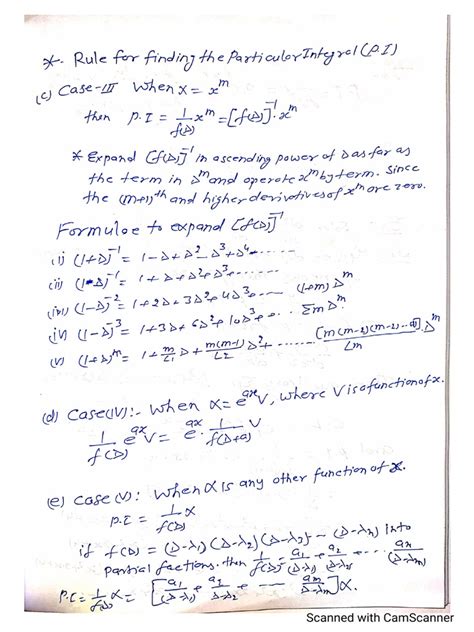 *. Rule for finding the Particular Integral (P.I)
(c) Case-III when X = x^m
then P.I = 1/f(D) x^m = [f(D)]^-1 . x^m
* Expand [f(D)]^-1 in ascending power of D as far as
the term in D^m and operate x^m by term. Since
the (m+1)^th and higher derivatives of x^m are zero.
Formulae to expand [f(D)]^-1
(i) (1+D)^-1 = 1 - D + D^2 - D^3 + D^4 ----
(ii) (1-D)^-1 = 1 + D + D^2 + D^3 + ----
(iii) (1-D)^-2 = 1 + 2D + 3D^2 + 4D^3 + ---- (1+m) D^m
(iv) (1-D)^-3 = 1 + 3D + 6D^2 + 10D^3 + .. Σm D^m.
(v) (1+D)^m = 1 + m/L1 D + m(m-1)/L2 D^2 + ...... [m(m-1)(m-2)...]/Lm . D^m
(d) Case(IV):- when X = e^ax V, where V is a function of x.
1/f(D) e^ax V = e^ax . 1/f(D+a) V
(e) Case (V): when X is any other function of x.
P.I = 1/f(D) X
if f(D) = (D-λ1)(D-λ2)(D-λ3) --- (D-λn) into
partial factions. then 1/f(D) = a1/(D-λ1) + a2/(D-λ2) + --- an/(D-λn)
P.I = 1/f(D) X = [a1/(D-λ1) + a2/(D-λ2) + ---- an/(D-λn)] X.
Scanned with CamScanner